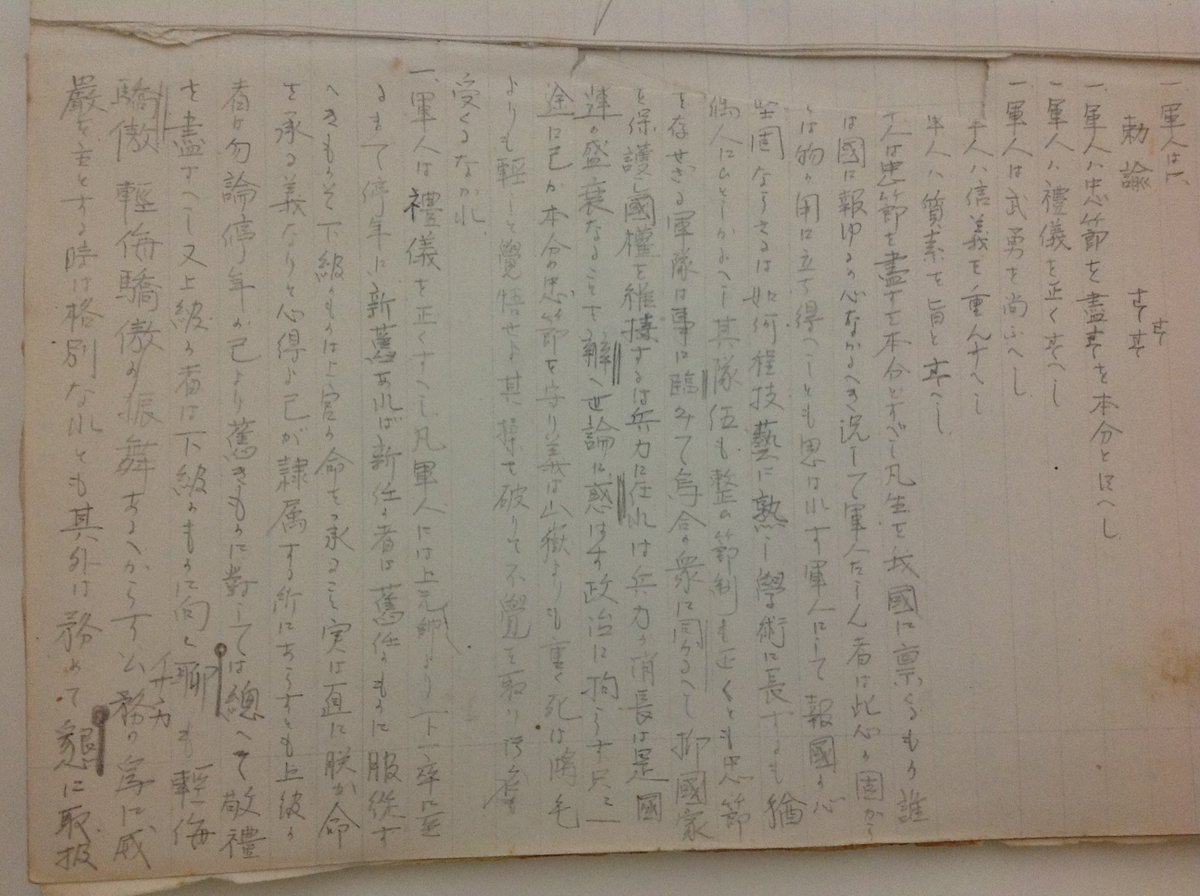 一軍人は、
勅諭
一軍人ハ忠節を盡すを本分とすへし
一軍人ハ禮儀を正くすへし
一軍人は武勇を尚ふへし
一軍人ハ信義を重んすへし
一軍人ハ質素を旨とすへし
一軍人は忠節を盡すを本分とすべし凡生を我國に禀くるもの誰
かは國に報ゆるの心なかるへき况して軍人たらん者は此心の固から
ては物の用に立ち得へしとも思はれす軍人にして報國の心
堅固ならさるは如何程技藝に熟し學術に長するも猶
偶人にひとしかるへし其隊伍も整ひ節制も正くとも忠節
を存せさる軍隊は事に臨みて烏合の衆に同かるへし抑國家
を保護し國權を維持するは兵力に在れは兵力の消長は是國
運の盛衰なることを辨へ世論に惑はす政治に拘らす只々一
途に己か本分の忠節を守り義は山嶽よりも重く死は鴻毛
よりも輕しと覺悟せよ其操を破りて不覺を取り汚名を
受くるなかれ
一、軍人は禮儀を正くすへし凡軍人には上元帥より下一卒に至
るまて停年に新舊あれば新任の者は舊任のものに服従す
へきものそ下級のものは上官の命を承ること実は直に朕か命
を承る義なりと心得よ己が隷属する所にあらすとも上級の
者は勿論停年の己より舊きものに對しては總へて敬禮
を盡すへし又上級の者は下級のものに向ひ聊も輕侮
驕傲 輕侮驕傲の振舞あるへからす公務の為に威
嚴を主とする時は格別なれとも其外は務めて懇に取扱